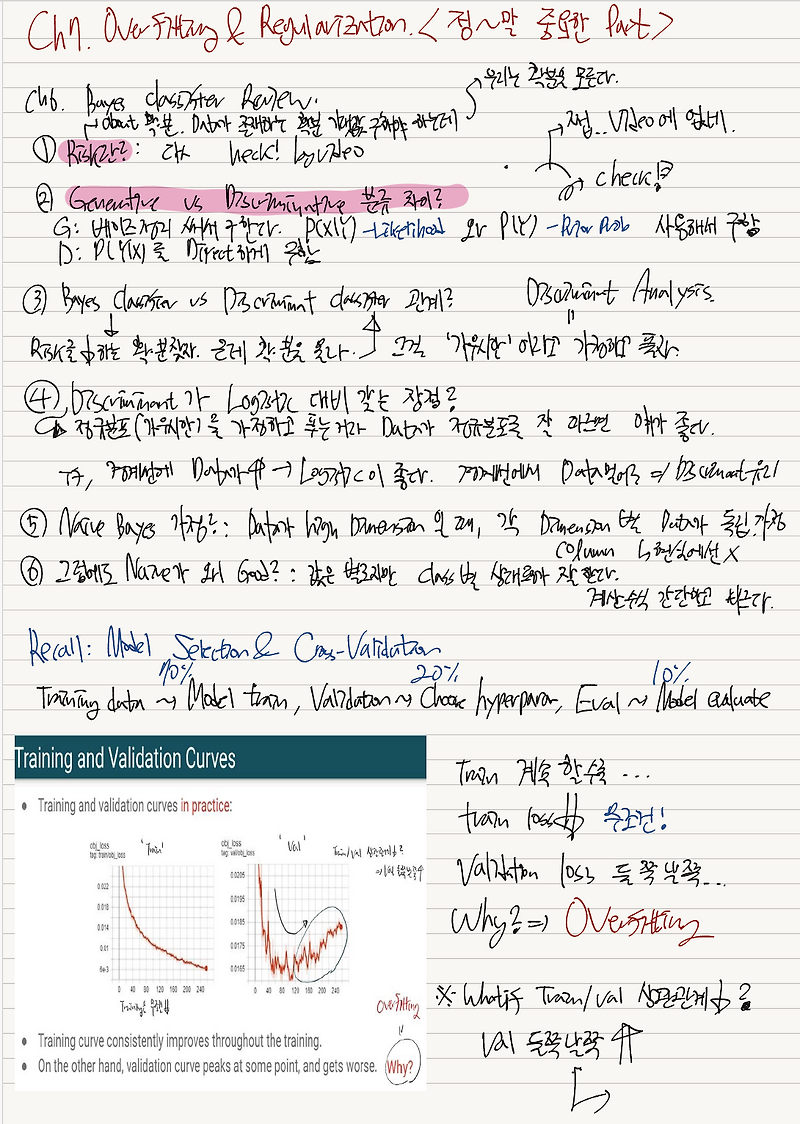 Ch7. Overfitting & Regularization. <정~말 중요한 Part>
우리는 확분을 모른다.
Ch6. Bayes classifier Review.
about 확분. Data가 존재하는 확분 구해야 하는데
① Risk란?: 다시 check! by video
직접.. Video에 없네.
check!?
② Generative vs Discriminative 분류 차이?
G: 베이즈정리 써서 구한다. P(X|Y) - Likelihood 와 P(Y) - Prior Prob 사용해서 구함
D: P(Y|X)를 Direct하게 구함
③ Bayes Classifier vs Discriminant classifier 관계?
Discriminant Analysis.
Risk를 ↓하는 확분찾자. 근데 확분을 몰라. 그걸 '가우시안' 이라고 가정하고 풀자.
④ Discriminant가 Logistic 대비 갖는 장점?
정규분포(가우시안)을 가정하고 푸는거라 Data가 정규분포를 잘 따르면 얘가 좋다.
즉, 경계선에 Data가 ↑ → Logistic이 좋다. 경계선에서 Data멀어 => Discriminant 유리
⑤ Naive Bayes 가정?: Data가 high Dimension 일 때, 각 Dimension 별 Data가 독립 가정
column ↳현실에선 X
⑥ 그럼에도 Naive가 왜 Good?: 값은 별로지만 class별 상대비교가 잘 한다.
계산수식 간단하고 빠르다.
Recall: Model Selection & Cross-Validation
70% 20% 10%
Training data ~> Model train, Validation ~> Choose hyperparam, Eval ~> Model evaluate
Training and Validation Curves
• Training and validation curves in practice:
obj_loss
tag: train/obj_loss
'Train'
obj_loss
tag: val/obj_loss
'Val'
Train/Val 상관관계↓?
=> Val 들쭉날쭉↑
0.022
0.018
0.014
0.01
6e-3
0 40 80 120 160 200 240
0.0205
0.0195
0.0185
0.0175
0.0165
0 40 80 120 160 200 240
Training은 무조건 ↓
Overfitting
• Training curve consistently improves throughout the training.
• On the other hand, validation curve peaks at some point, and gets worse. Why?
Train 계속 할수록 ...
train loss↓ 무조건!
Validation loss 들쭉날쭉...
Why? => Overfitting
※ What if Train/val 상관관계↓?
Val 들쭉날쭉 ↑